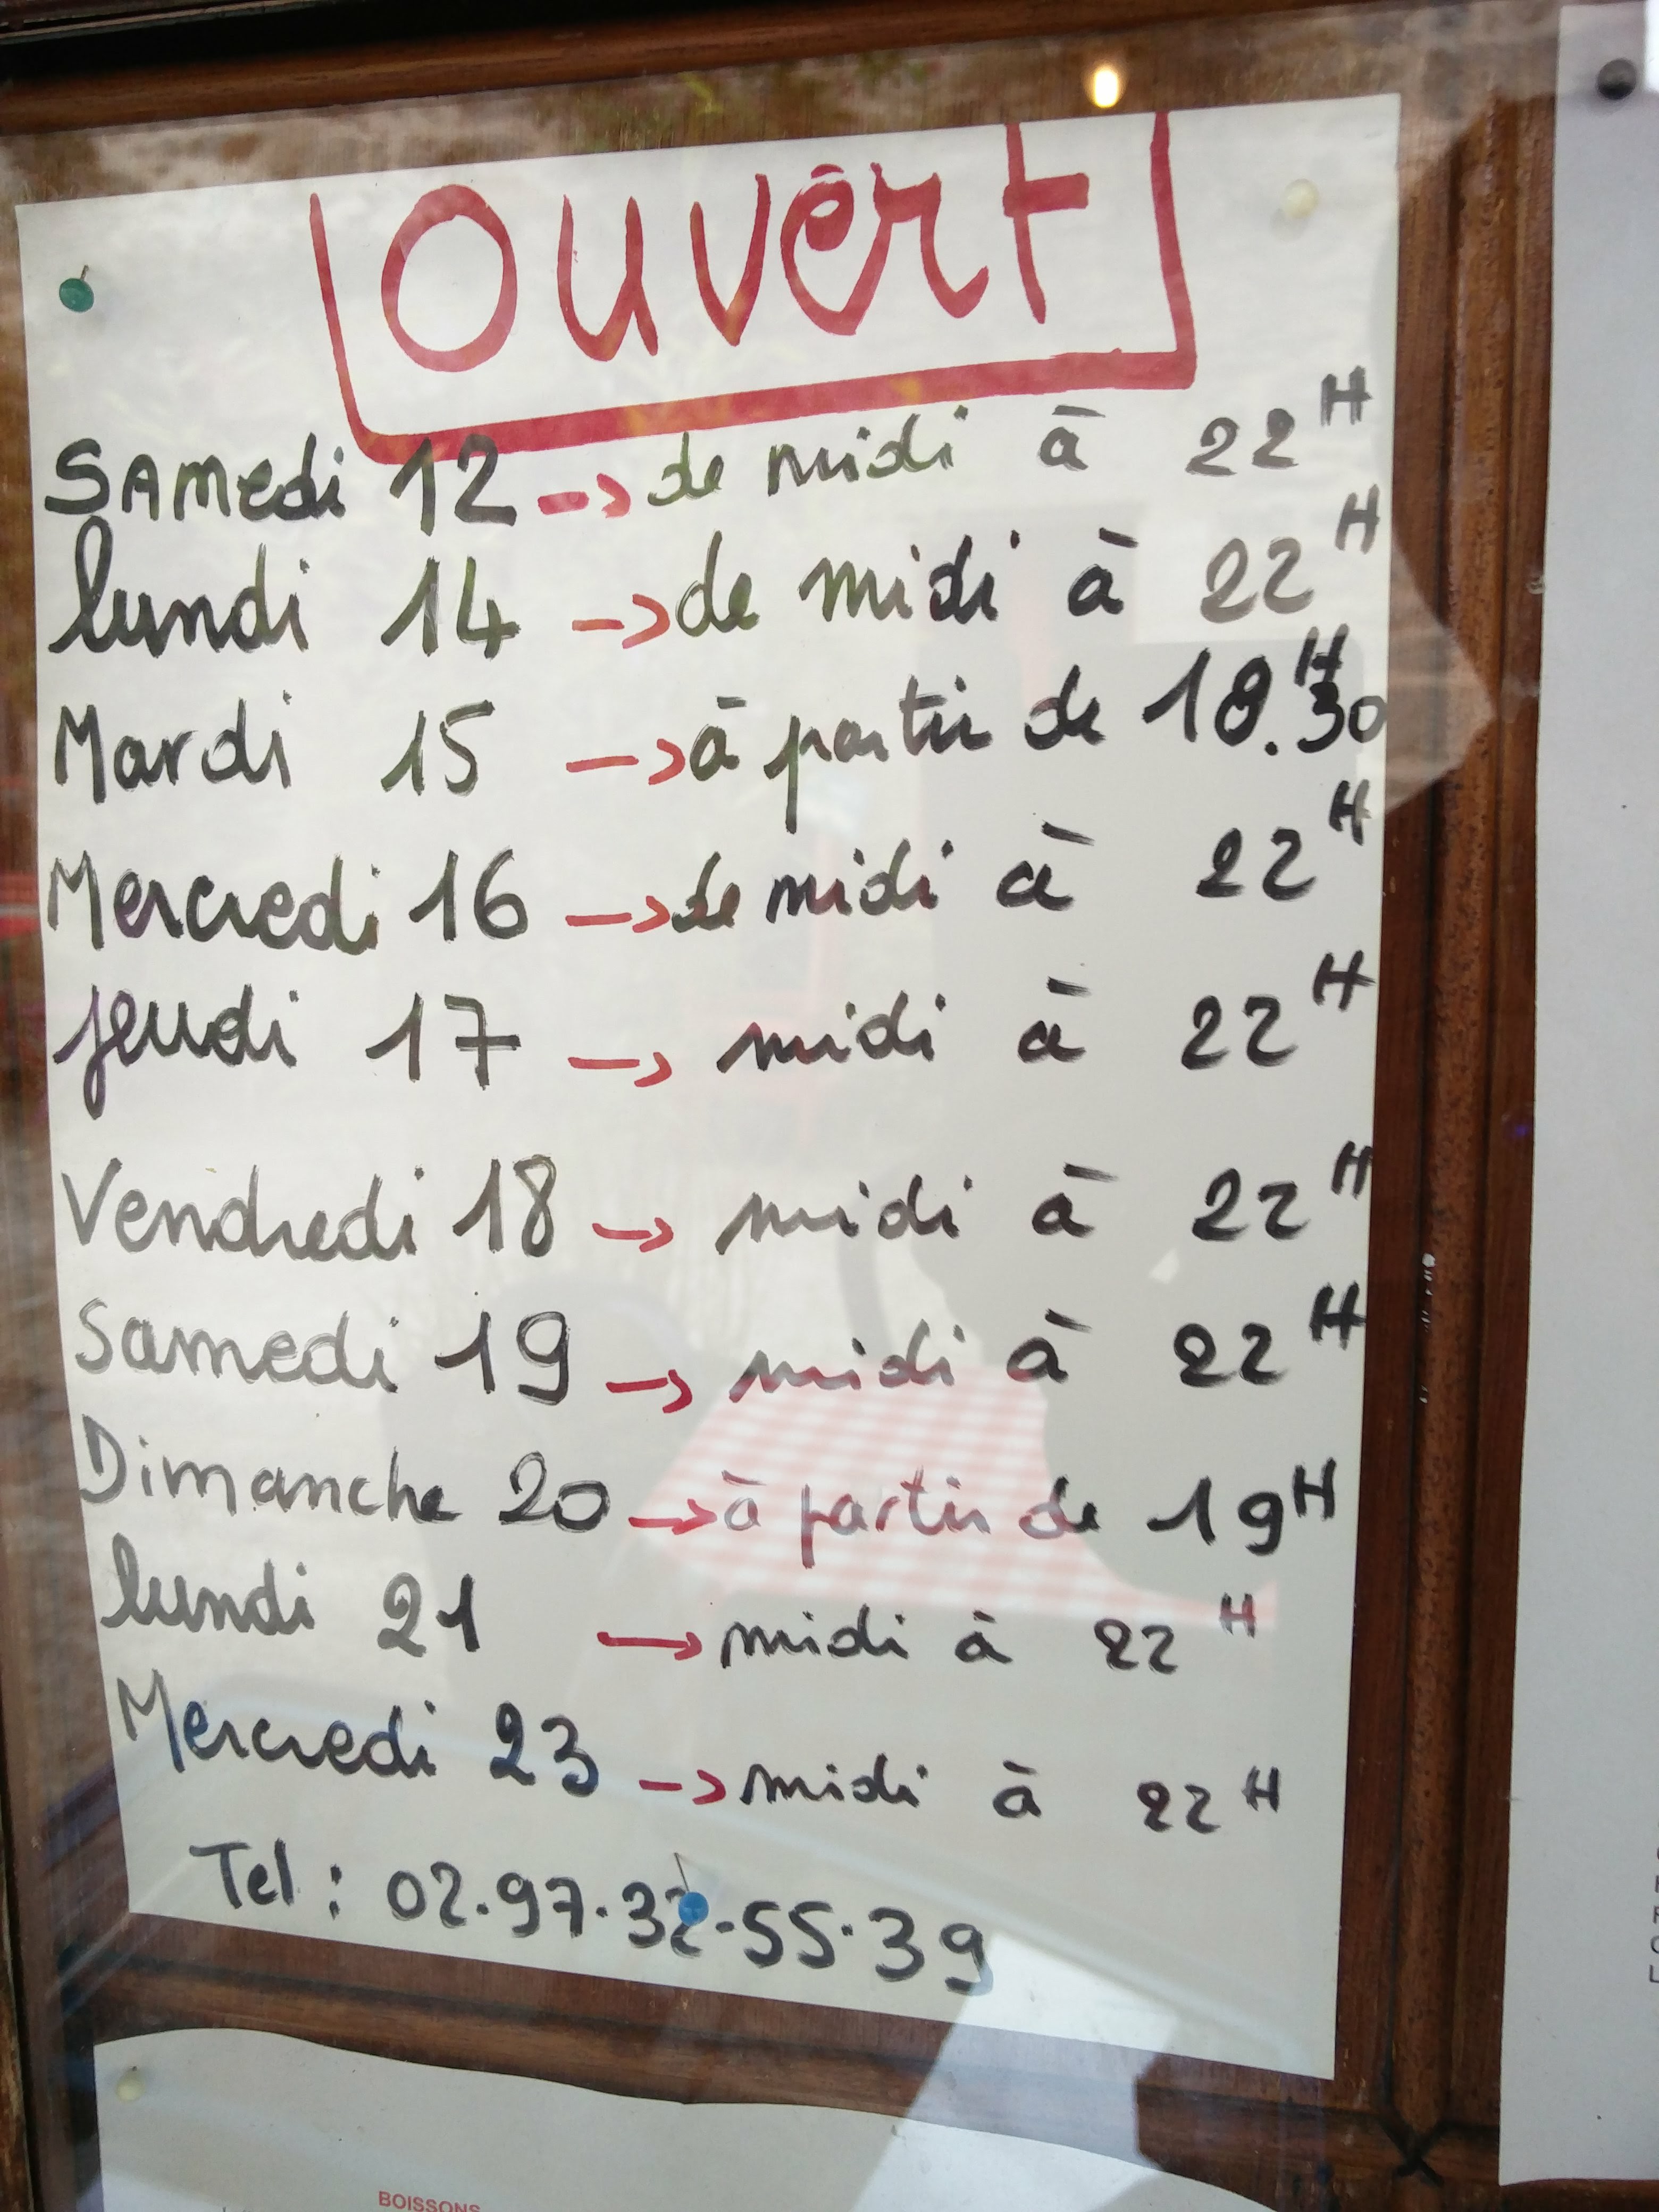 Ouvert
Samedi 12 -> de midi à 22H
lundi 14 -> de midi à 22H
Mardi 15 -> à partir de 18H.30
Mercredi 16 -> de midi à 22H
jeudi 17 -> midi à 22H
Vendredi 18 -> midi à 22H
Samedi 19 -> midi à 22H
Dimanche 20 -> à partir de 19H
lundi 21 -> midi à 22H
Mercredi 23 -> midi à 22H
Tel : 02.97.32.55.39
BOISSONS